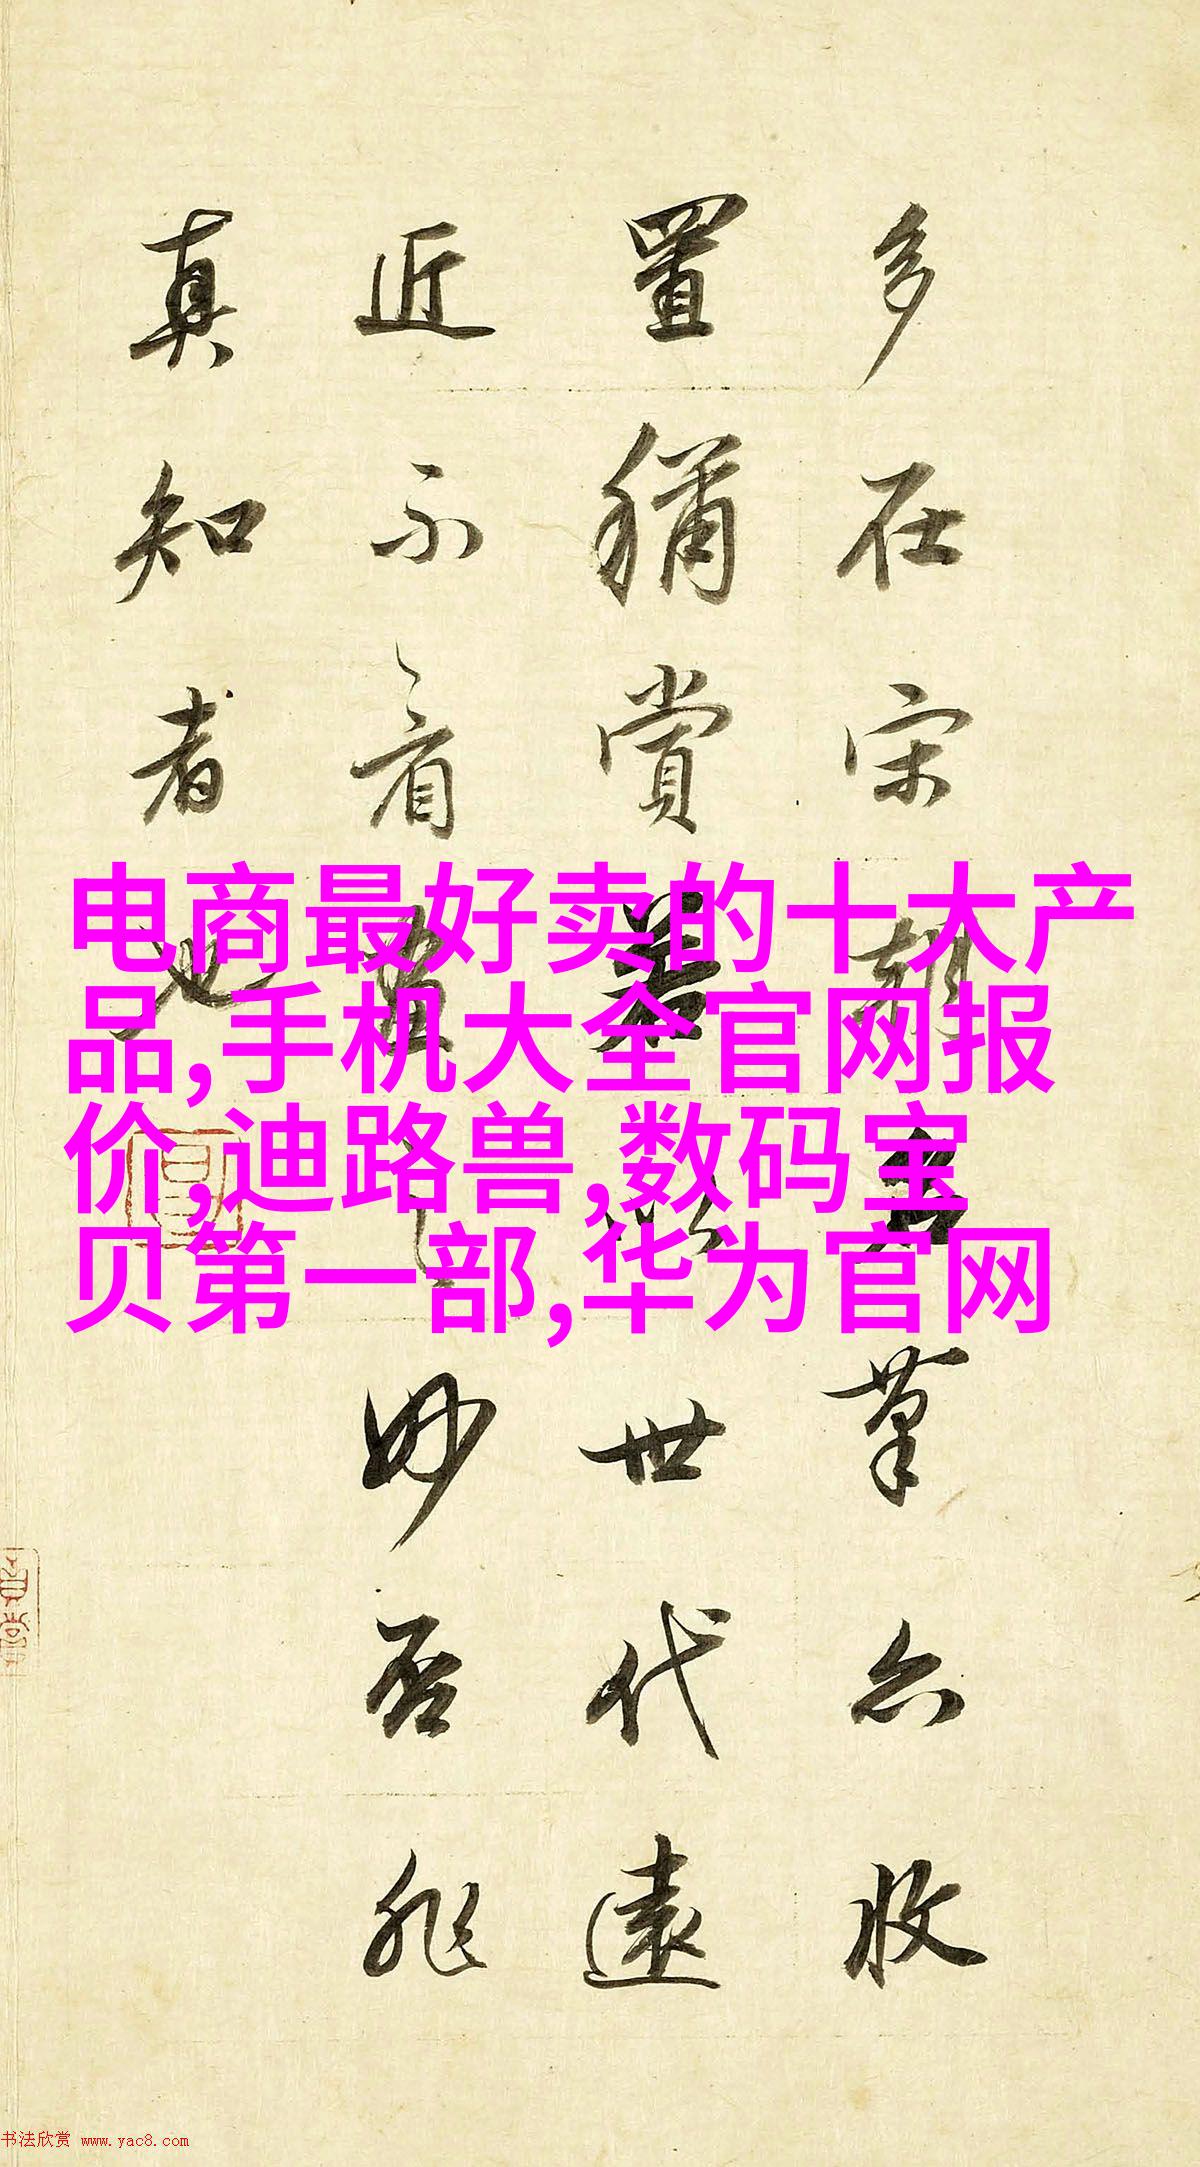 多在宋朝名筆亦收
置稱賞若以世代遠
近不看畫之妙否非
真知者也
电商最好卖的十大产
品,手机大全官网报
价,迪路兽,数码宝
贝第一部,华为官网
书法欣赏 www.yac8.com